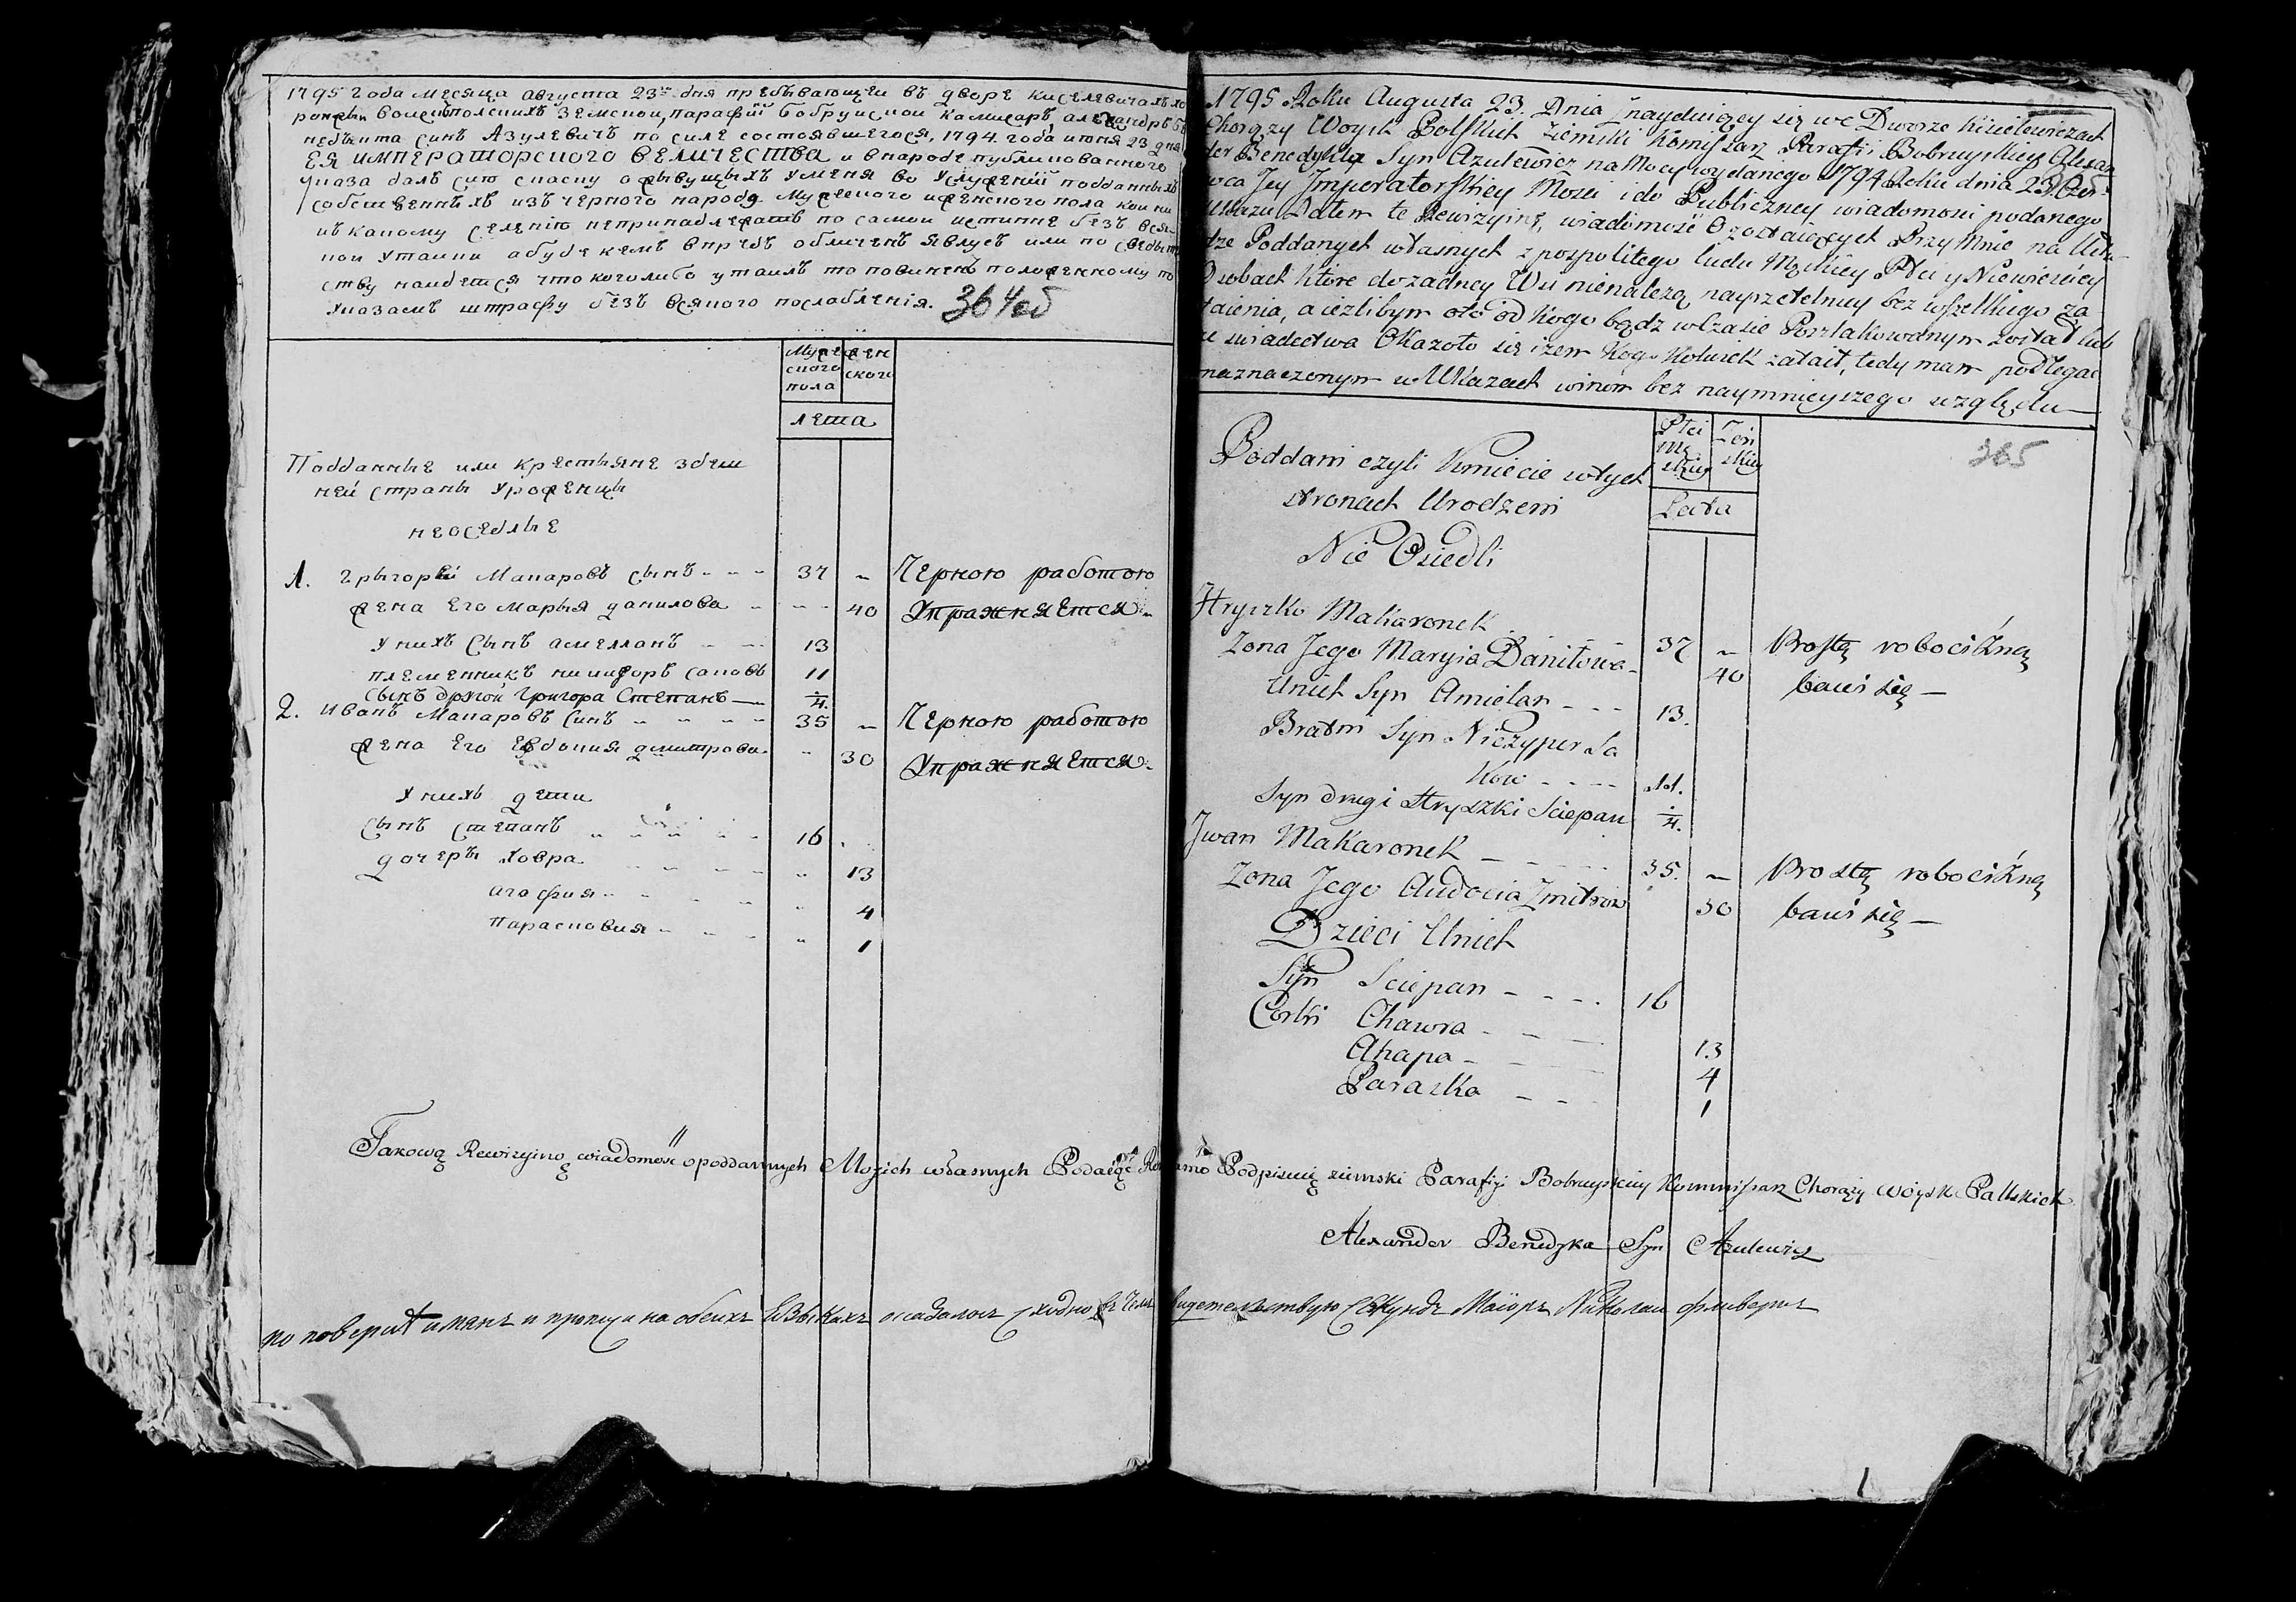 1795 года месяца августа 23го дня пребывающеи въ дворе киселевичахъ хо
ронжы воискъ полскихъ земскои парафїи бобруискои камисаръ александръ бе
недыкта сынъ Азулевичъ по силе состоявшегося, 1794. года июня 23 дня
ея императорского величества и в народе публикованного
указа далъ сию скаску о живущыхъ у меня во услужениї подданныхъ
собственныхъ изъ черного народа мужеского и женского пола кои ни
къ какому селению непринадлежатъ по самои истинне безъ вся-
кои утаики а буде кемъ впредь обличенъ явлусь или по свидетел
ству наидется что коголибо утаилъ то повиненъ положенному по
указамъ штрафу безъ всякого послабления. 364об
мужеского пола
женского
лета
Подданные или крестьяне здеш
ней страны уроженцы
неоседлые
1. григорѣй Макаровъ сынъ - - - 37 - Черною работою
жена Его Марья данилова - - - 40 упражняется -
у нихъ сынъ амеллянъ - - - 13
племенникъ никифоръ саковъ 11
сынъ другой Григора Степанъ — 1/4.
2. иванъ Макаровъ сынъ - - - - 35 - Черною работою
жена Его Евдокия дмитрова - - 30 упражняется -
у нихъ дети
сынъ степанъ - - - - - 16
дочеры ховра - - - - - 13
агафия - - - - 4
парасковия - - - - 1
1795 Roku Augusta 23. Dnia naydującey się we Dworze Kisielewiczach
Chorązy Woysk Polskich Ziemski Komissarz Parafii Bobruyskiey Alexan
der Benedykta Syn Azulewicz na Mocy wydanego 1794 Roku dnia 23 Czer-
wca Jey Imperatorskiey Mosci i do Publiczney wiadomosci podanego
Ukazu Dałem tę Rewizyiną, wiadomość o zostaiących Przy Mnie na Usłu-
dze Poddanych własnych z pospolitego ludu Męskiey Płci y Niewieściey
Osobach które do zadney Wsi nienalezą nayrzetelniey bez wszelkiego za
taienia, a iezlibym oto od Kogo bądz wczasie Poszlakowanym został lub
ze swiadectwa Okazało się izem Kogo Kolwiek zataił, tedy mam podlegać
naznaczonym w Ukazach winom bez naymnieyszego względu —
Płci Mę-skiey
Żeń skiey
Leata
365
Poddani czyli Kmiecie w tych
stronach Urodzeni
Nie Osiedli
Hryszko Makaronek - - 37 - Prostą robocizną
Zona Jego Maryia Daniłowa - 40 bawi się —
Unich Syn Amielan - - - 13.
Bratni Syn Niczyper Sa
kow - - - - 11.
Syn drugi Hryszki Sciepan 1/4.
Jwan Makaronek - - - - 35. - Prostą robocizną
Zona Jego Audocia Zmitrow 30 bawi się —
Dzieci Unich
Syn Sciepan - - - - 16
Corki Chawra - - - - 13
Ahapa - - - 4
Paraska - - - 1
Takową Rewizyiną wiadomość o poddannych Moyich własnych Podaiąc Podpisuię ziemski Parafiji Bobruyskiey Kommissarz Chorąży woysk Pallskich
Alexander Benedykta Syn Azulewicz
по поверит имянъ и прописи на обеихъ языкахъ оказалось сходно въ чемъ свидетельствую Секундъ Маіоръ Николаи